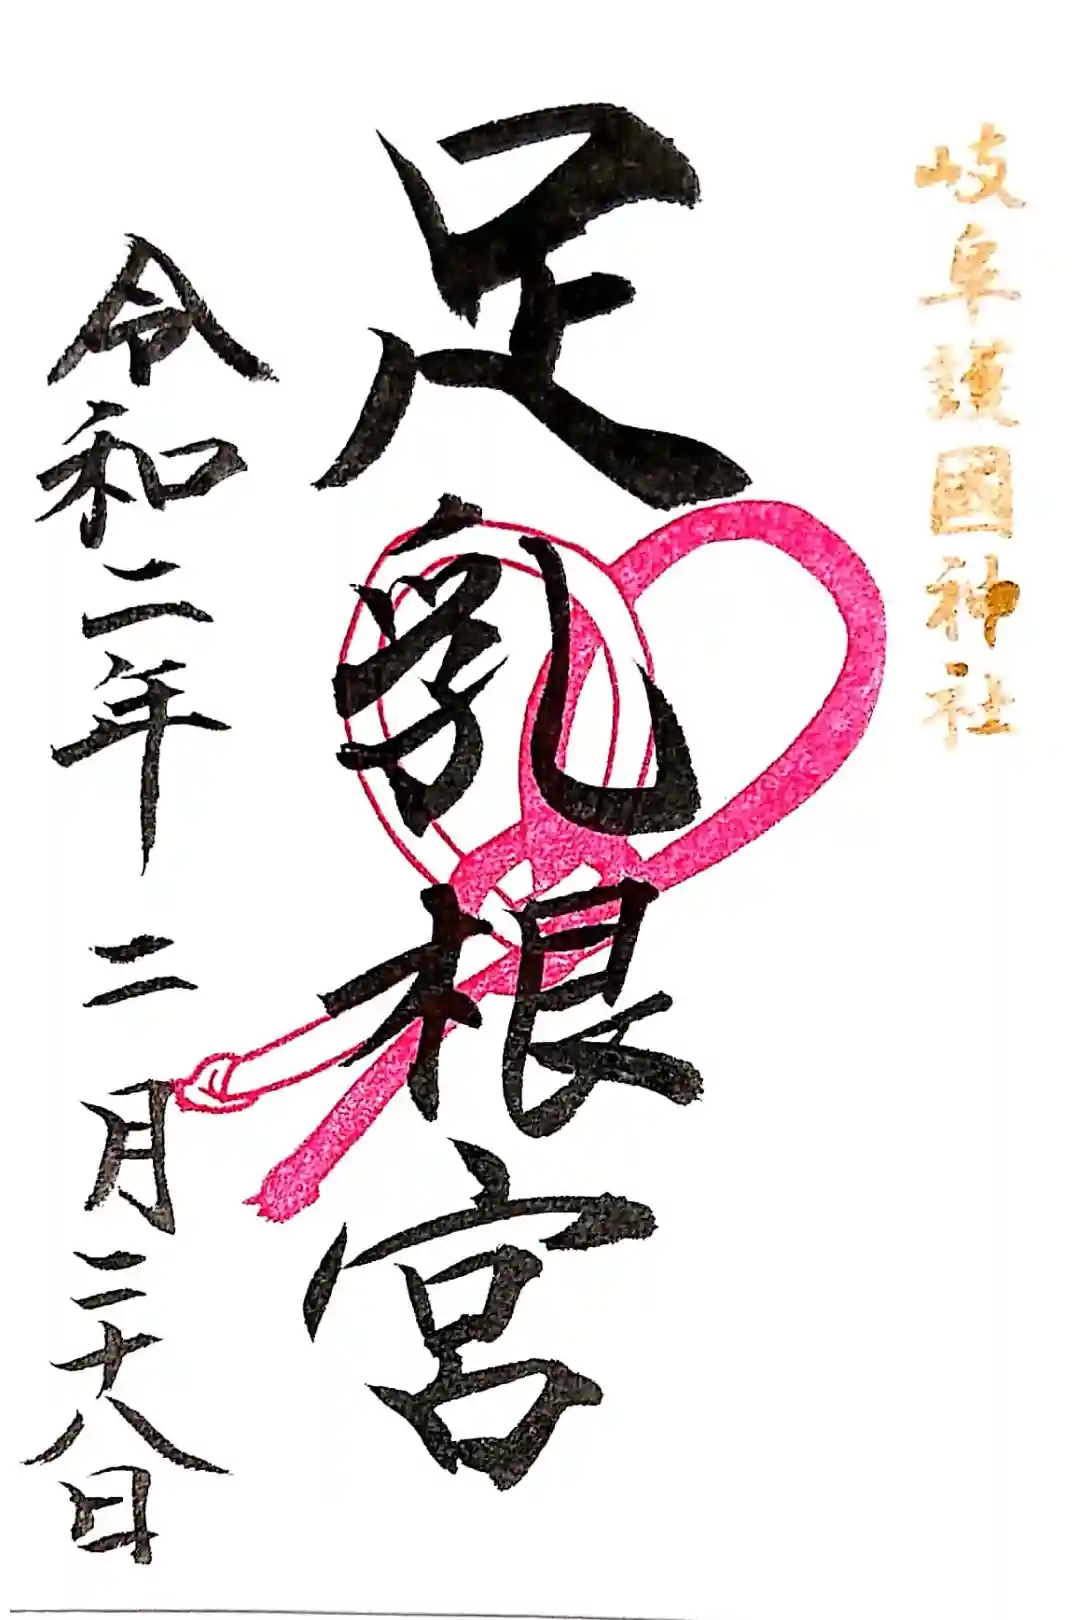 岐阜護國神社
足乳根宮
令和二年 二月二十八日